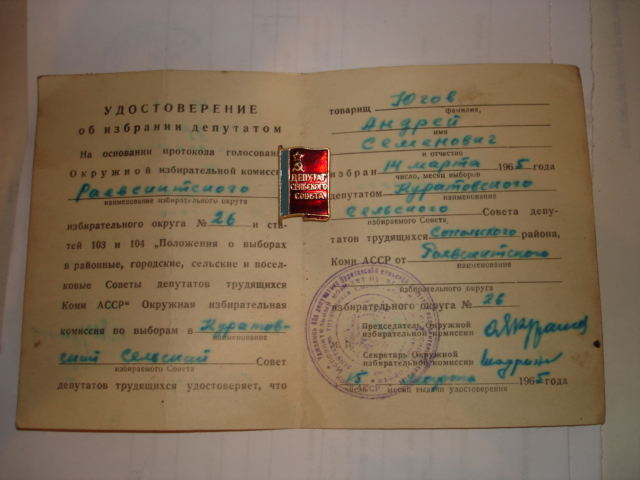 УДОСТОВЕРЕНИЕ
об избрании депутатом
На основании протокола голосован
Окружной избирательной комисси
Раевсиитского
наименование избирательного округа
избирательного округа № 26 и ста-
тей 103 и 104 „Положения о выборах
в районные, городские, сельские и посел-
ковые Советы депутатов трудящихся
Коми АССР" Окружная избирательная
комиссия по выборам в Куратов-
наименование
ский Сельский Совет
избираемого Совета
депутатов трудящихся удостоверяет, что
ДЕПУТАТ
СЕЛЬСКОГО
СОВЕТА
товарищ Югов
фамилия,
Андрей
имя
Семенович
и отчество
избран 14 марта 1965 года
число, месяц выборов
депутатом Куратовского
наименование
Сельского Совета депу-
избираемого Совета
татов трудящихся Сысольского района,
Коми АССР от Раевсиитского
наименование
избирательного округа
избирательного округа № 26
Председатель Окружной
избирательной комиссии
Секретарь Окружной
избирательной комиссии
15 марта 1965 года
месяц выдачи удостоверения